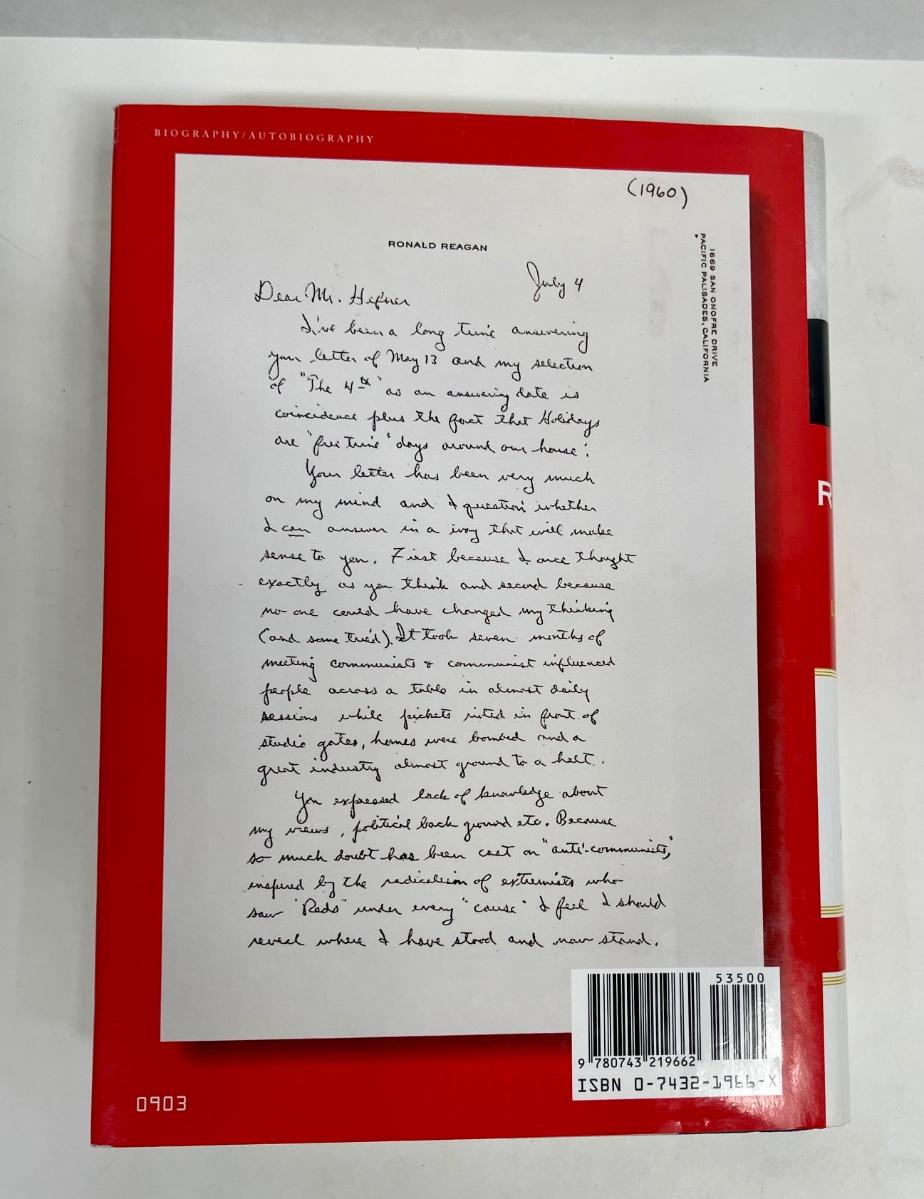 BIOGRAPHY/AUTOBIOGRAPHY
(1960)
RONALD REAGAN
1669 SAN ONOFRE DRIVE
PACIFIC PALISADES, CALIFORNIA
July 4
Dear Mr. Hefner
I've been a long time answering
your letter of May 13 and my selection
of "The 4th" as an answering date is
coincidence plus the fact that Holidays
are "free time" days around our house.
Your letter has been very much
on my mind and I question whether
I can answer in a way that will make
sense to you. First because I once thought
exactly as you think and second because
no one could have changed my thinking
(and some tried). It took seven months of
meeting communists & communist influenced
people across a table in almost daily
sessions while pickets rioted in front of
studio gates, homes were bombed and a
great industry almost ground to a halt.
You expressed lack of knowledge about
my views, political back ground etc. Because
so much doubt has been cast on "anti-communists,"
inspired by the radicalism of extremists who
saw "Reds" under every "cause" I feel I should
reveal where I have stood and now stand.
53500
9 780743 219662
ISBN 0-7432-1966-X
0903
R